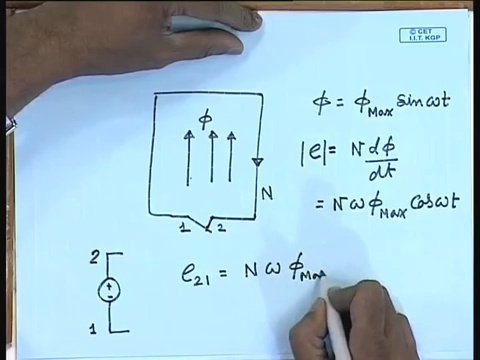 © CET
I.I.T. KGP
ϕ = ϕ_Max sin ωt
ϕ
|e| = N dϕ/dt
N
= N ω ϕ_Max cos ωt
1 2
2
e_21 = N ω ϕ_Max
+
-
1